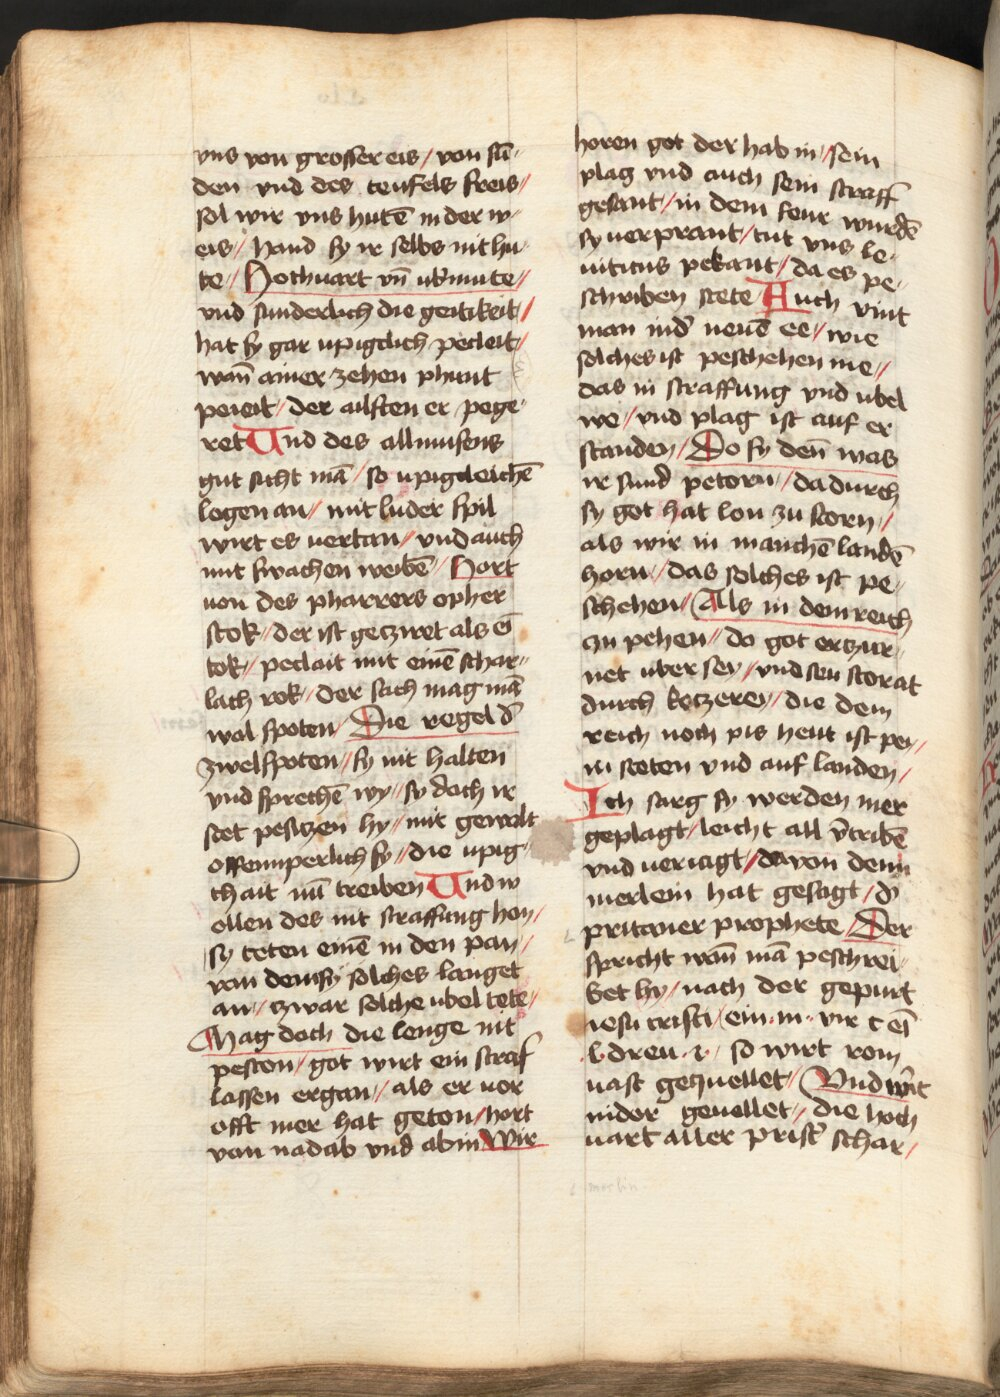 vns von grosser eis / von sū-
den vnd des teufels freis //
sol wir vns hutē in der w-
eis // Hand sy ir selbs nit hu-
te // Hochuart vn̄ vbmute //
vnd sunderlich die geitikeit /
hat sy gar vpigclich pecleit //
wan̄ ainer zehen phunt
pereit // der ailften er pege-
ret Vnd des allmusens
gut sicht mā / so vpigcleichē
legen an // mit luder spil
wirt es vertan // vnd auch
mit swachen weibē // Hort
von des pharrers opher
stok // der ist gecziret als ei
tok // peclait mit einē schar-
lach rok // der sach mag mā
wol spoten / Die regel d̄
zwelfpoten // sy nit halten
vnd sprechē wy // sy doch ir
stet pesiczen hy // mit gewalt
offennperlich sy // die vpig-
chait nū treiben Vnd w
ollen des nit straffung hon /
sy teten einē in den pan /
von dem sy solches langet
an // czwar solche vbel tete //
Mag doch die lenge nit
peston / got wirt ein straf
lassen ergan // als er vor
offt mer hat geton / hort
von nadab vnd abiu Wir
horen got der hab in / sein
plag vnd auch sein straff
gesant / in dem feur wurdē
sy verprant / tut vns le-
uiticus pekant / da es pe-
schriben stete Auch vint
man in d̄ neuē ee / wie
solches ist peschehen me //
das in straffung vnd vbel
we / vnd plag ist auf er
standen / Do sy den̄ was
ir sund petorn // da durch
sy got hat lon zu storn //
als wir in manchē landē
horn // das solches ist pe-
schehen / Als in dem reich
zu pehen // do got erczur-
net vber sey / vnd seu storat
durch keczerey // die dem
reich noch pis heut ist pey //
in steten vnd auf landen /
Ich sarg sy werden mer
geplagt / leicht all v̄tribē
vnd veriagt / davon denn
merlein hat gesagt / d̄
pritanier prophete / Der
spricht wan̄ mā peschrei-
bet hy / nach der gepurt
iesu cristi / ein · m · vir c ei
· l · dreu · i · so wirt rom
vast gequellet // Vnd wirt
nider geuellet // die hoch
uart aller prist̄ schar /
merlin